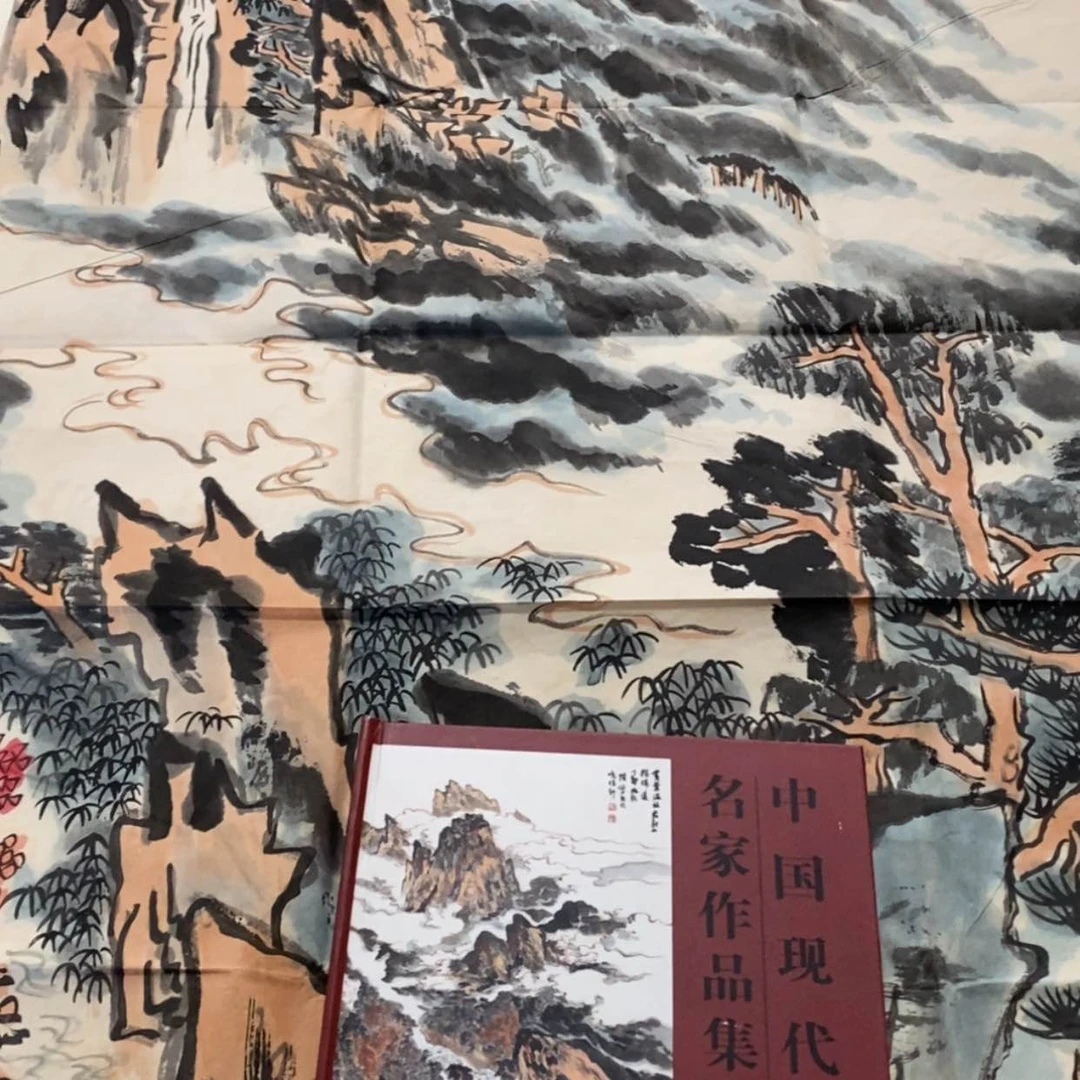 中国现代
名家作品集